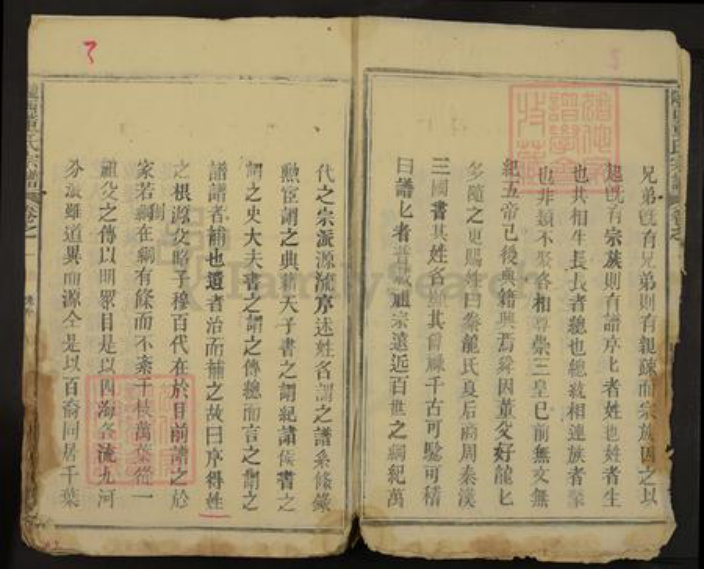 兄弟旣有兄弟則有親疎而宗族因之以
起旣有宗族則有譜序比者姓也姓者生
也共相生長長者總也總衆相連族者
也非類不聚各相尊崇三皇已前無文無
紀五帝已後典籍興焉舜因董父好龍匕
多隨之更賜姓曰豢龍氏夏后商周秦漢
三國書其姓名顯其官祿千古可驗可稽
曰譜匕者普也祖宗遠近百世之綱紀萬
代之宗派源流序述姓名謂之譜系條錄
勲宦謂之典籍天子書之謂紀諸侯書之
謂之史大夫書之謂之傳總而言之謂之
譜譜者補也遺者治而補之故曰序得姓
之根源父昭子穆百代在於目前譜之於
家若綱在綱有條而不紊于枝萬葉從一
樹
祖父之傳以明眾目是以四海各流九河
分派雖道異而源仝是以百裔同居千葉
隴西董氏宗譜 卷之一
FamilySearch